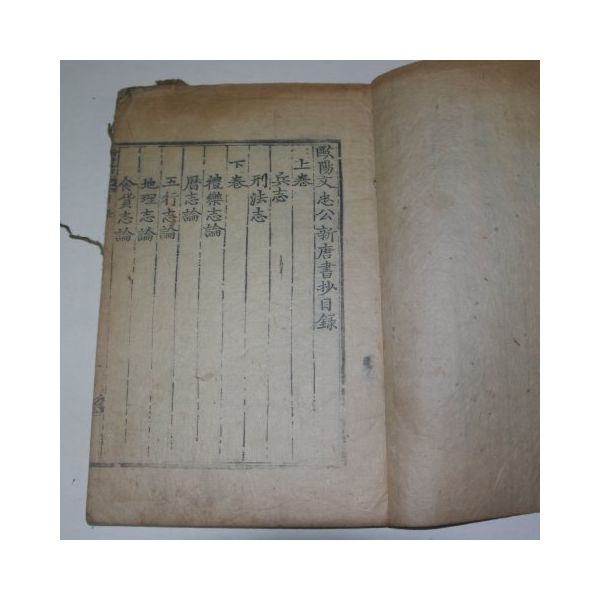 歐陽文忠公新唐書抄目錄
上卷
兵志
刑法志
下卷
禮樂志論
曆志論
五行志論
地理志論
食貨志論